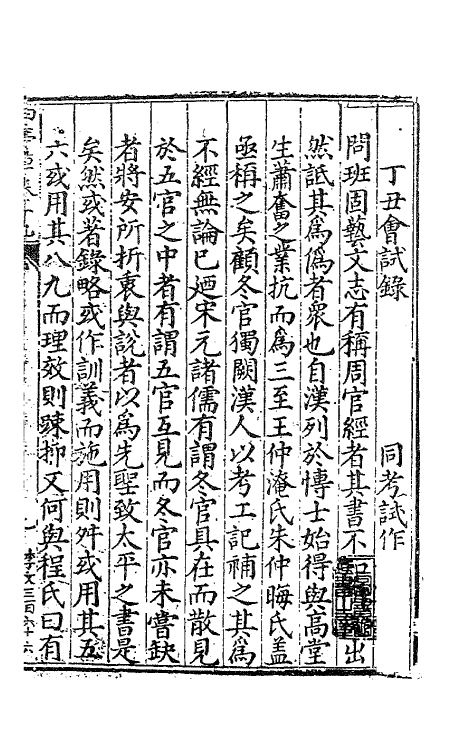 丁丑會試錄 同考試作
問班固藝文志有稱周官經者其書不出
然詆其為偽者衆也自漢列於博士始得與高堂
生蕭奮之業抗而為三至王仲淹氏朱仲晦氏蓋
亟稱之矣顧冬官獨闕漢人以考工記補之其為
不經無論已廼宋元諸儒有謂冬官具在而散見
於五官之中者有謂五官互見而冬官亦未嘗缺
者將安所折衷與說者以為先聖致太平之書是
矣然或著錄略或作訓義而施用則舛或用其五
六或用其八九而理效則踈抑又何與程氏曰有